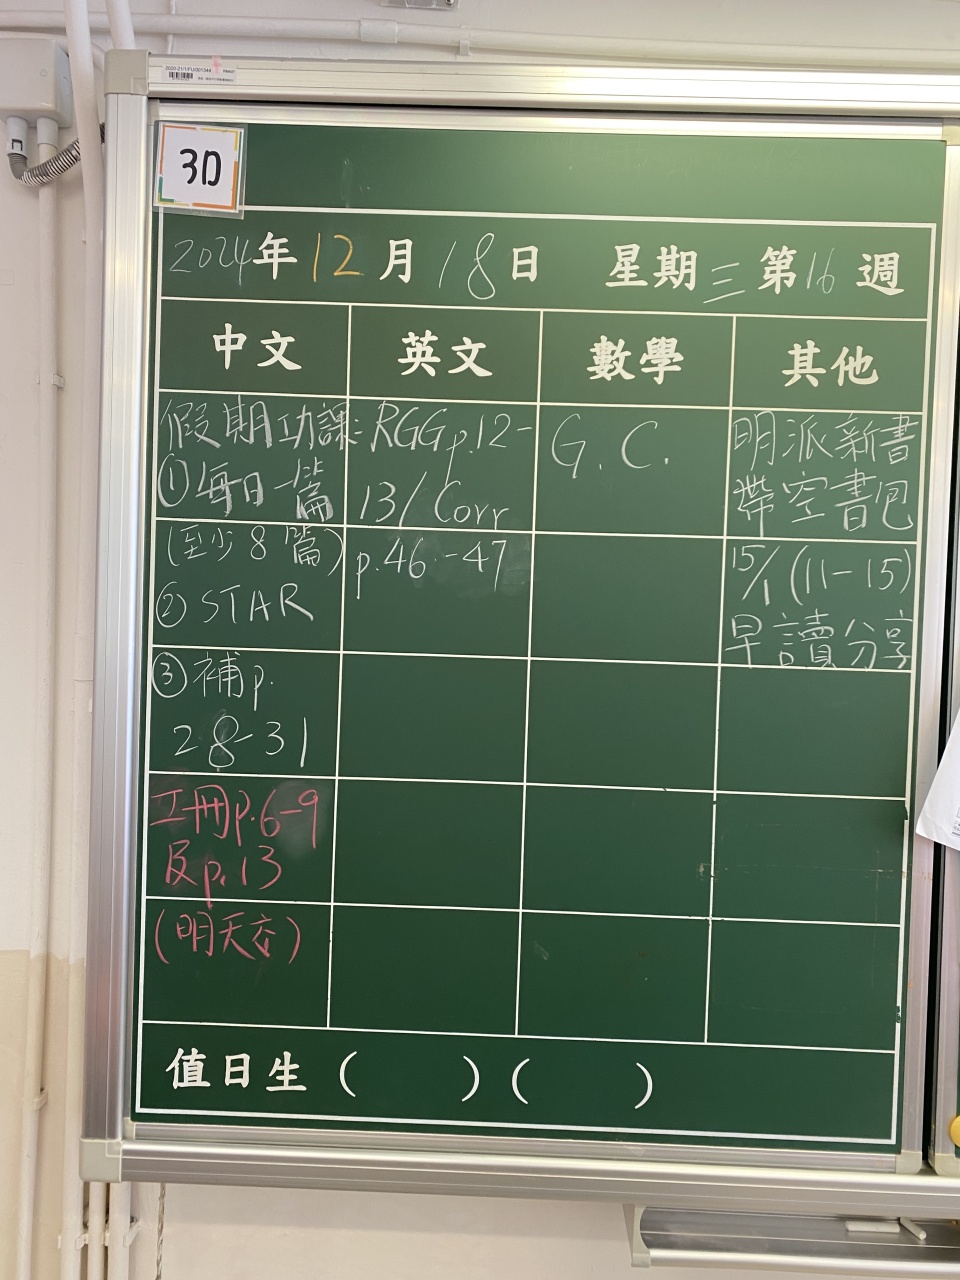 3D
2024年12月18日 星期三 第16週
中文 英文 數學 其他
假期功課:
①每日一篇
(至少8篇)
②STAR
③補p.
28-31
工冊p.6-9
反p.13
(明天交)
RGG p.12-
13/Corr
p.46-47
G.C.
明派新書
帶空書包
15/1 (11-15)
早讀分享
值日生 ( ) ( )